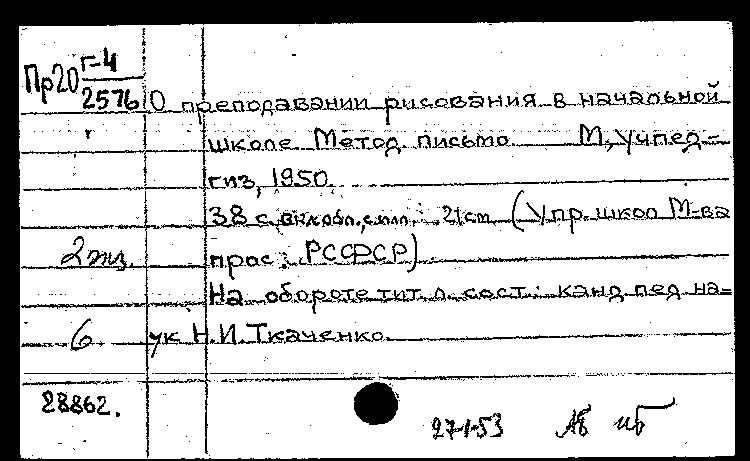 Пр20 Г-4
2576
О преподавании рисования в начальной
школе. Метод. письмо. М, Учпед-
гиз, 1950.
38 с. вкл. обл., с илл.; 21 см. (Упр. школ М-ва
2 экз. прос. РСФСР).
На обороте тит. л. сост.: канд. пед. на-
6 ук Н.И. Ткаченко.
28862.
27-1-53